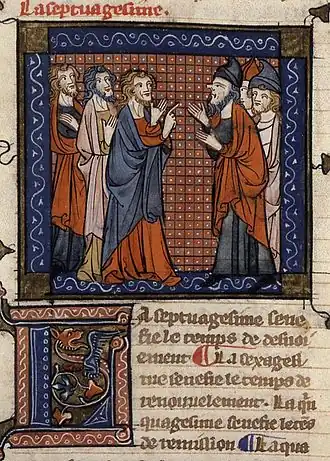 La septuagesime.
La septuagesime sene
fie le temps de desuoi
ement ¶ La sexagesi
me senefie le temps de
renouuelement. La qui
quagesime senefie le tēs
de remission ¶ La qua